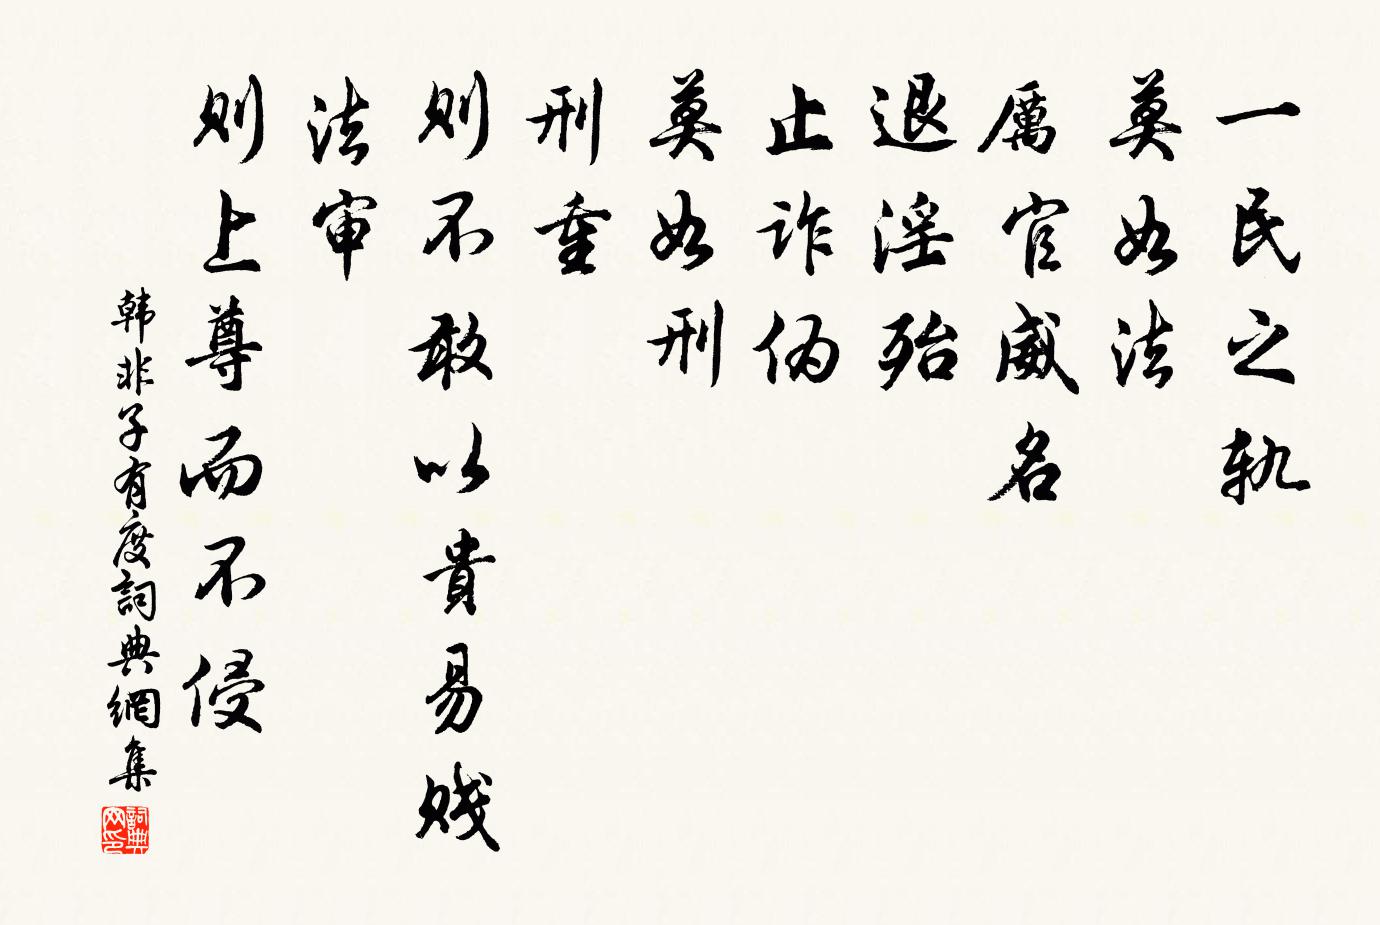 一民之轨
莫如法
厲官威名
退淫殆
止诈伪
莫如刑
刑重
则不敢以貴易贱
法审
则上尊而不侵
韩非子有度詞典網集
詞典网印